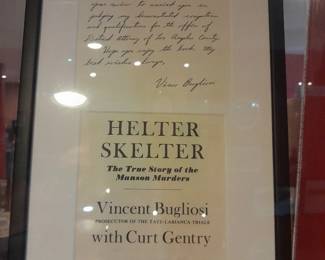 your review to assist you in
judging my demonstrated
and qualifications for the office of
District Attorney of Los Angeles County.
Hope you enjoy the book. My
best wishes always,
Vince Bugliosi
HELTER
SKELTER
The True Story of the
Manson Murders
Vincent Bugliosi
PROSECUTOR OF THE TATE-LABIANCA TRIALS
with Curt Gentry